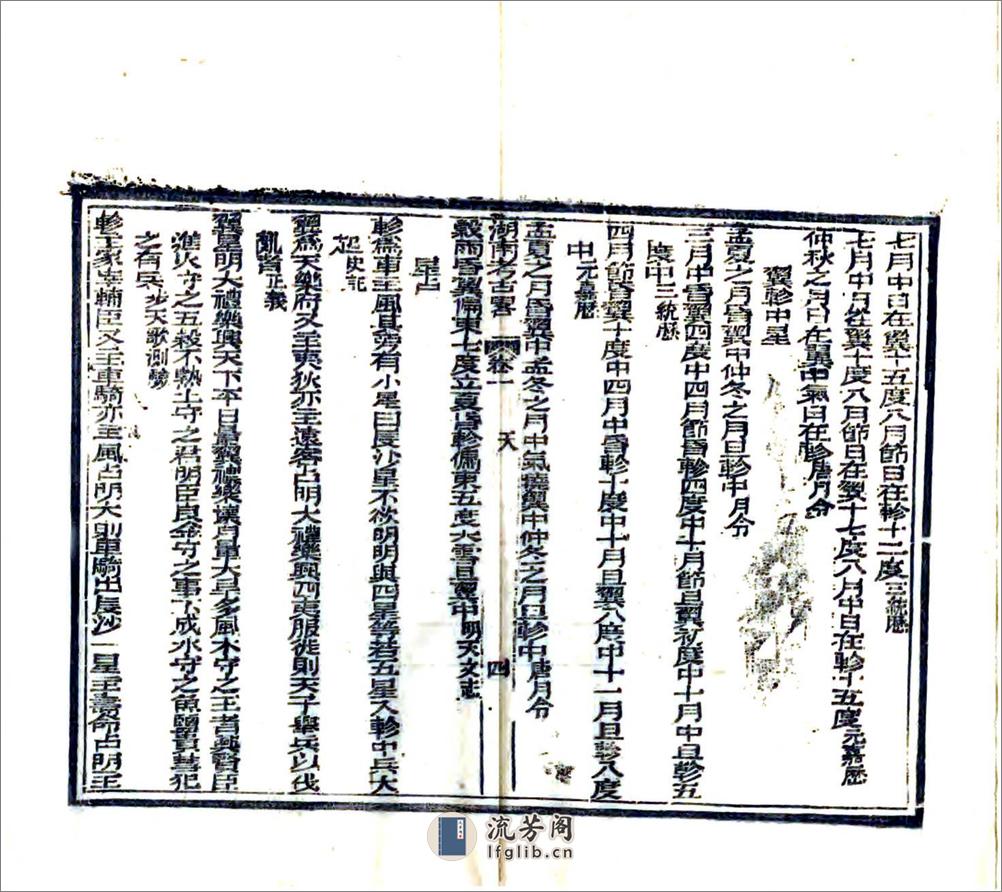 七月中日在翼十五度八月節日在軫十二度三統厯
七月中日在翼十度八月節日在翼十七度八月中日在軫十五度元嘉厯
仲秋之月日在翼中氣日在軫唐月令
翼軫中星
孟夏之月昏翼中仲冬之月旦軫中月令
三月中昏翼四度中四月節昏軫四度中十月節旦翼初度中十月中旦軫五
度中三統厯
四月節昏翼十度中四月中昏軫十度中十月旦翼八度中十一月旦軫八度
中元嘉厯
孟夏之月昏翼中孟冬之月中氣曉翼中仲冬之月旦軫中唐月令
湖南考古畧 卷一 天 四
穀雨昏翼偏東七度立夏昏軫偏東五度大雪旦翼中明天文志
星占
軫為車主風其旁有小星曰長沙星不欲明明與四星等若五星入軫中兵大
起史記
翼為天樂府又主夷狄亦主遠客占明大禮樂興四夷服徙則天子舉兵以伐
亂者正義
翼星明大禮樂興天下平日暈翼禮樂壞月暈大旱多風木守之王者興賢臣
進火守之五穀不熟土守之君明臣良金守之事不成水守之魚鹽貴彗犯
之有兵步天歌測驗
軫主冢宰輔臣又主車騎亦主風占明大則車騎出長沙一星主壽命占明主
流芳阁
lfglib.cn